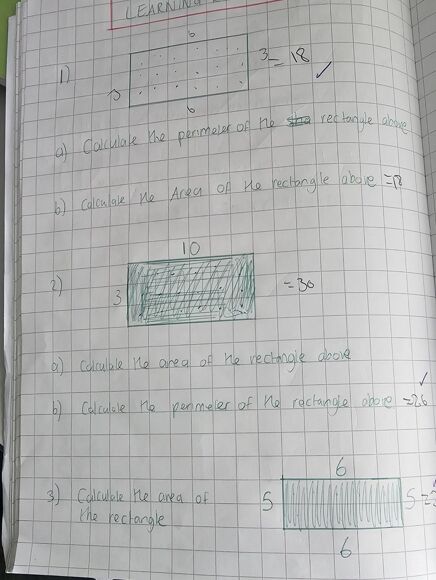 LEARNING
6
1) 3 3 = 18 ✓
6
a) Calculate the perimeter of the rectangle above
b) Calculate the Area of the rectangle above = 18
10
2) 3 = 30
a) Calculate the area of the rectangle above
b) Calculate the perimeter of the rectangle above = 26 ✓
6
3) Calculate the area of 5 5 =
the rectangle
6